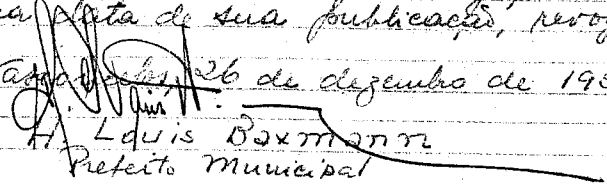 na data de sua publicação, revog
26 de dezembro de 195
H. Louis Baxmann
Prefeito Municipal